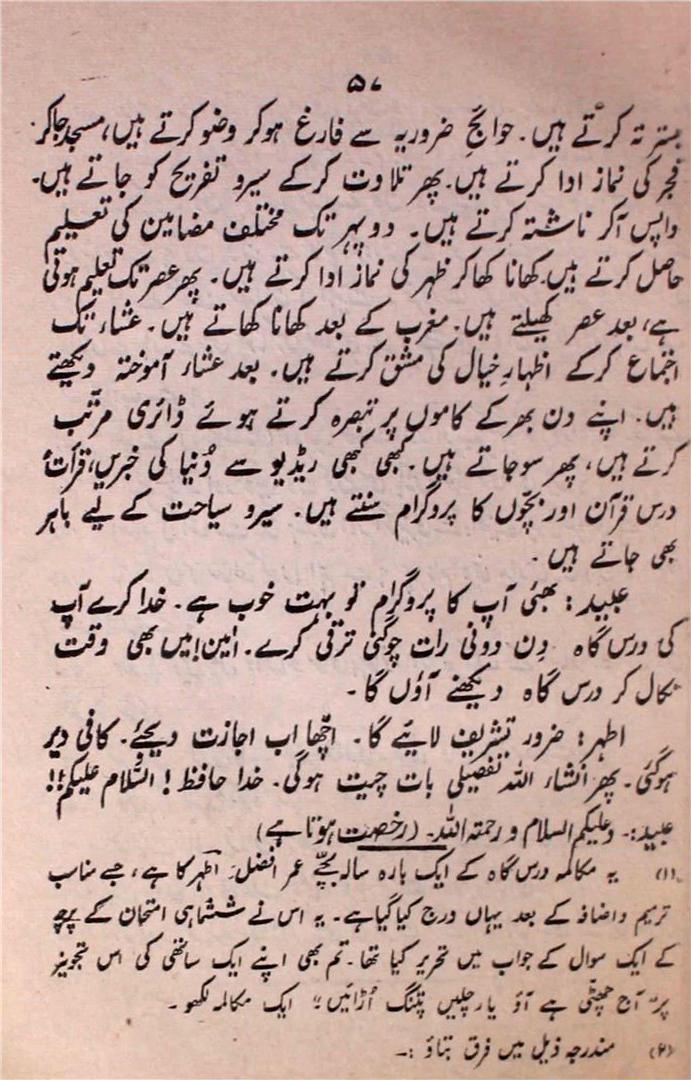 ۵۷
بستر تہ کرتے ہیں۔ حوائجِ ضروریہ سے فارغ ہوکر وضو کرتے ہیں، مسجد جاکر
فجر کی نماز ادا کرتے ہیں۔ پھر تلاوت کرکے سیرو تفریح کو جاتے ہیں۔
واپس آکر ناشتہ کرتے ہیں۔ دوپہر تک مختلف مضامین کی تعلیم
حاصل کرتے ہیں۔ کھانا کھاکر ظہر کی نماز ادا کرتے ہیں۔ پھر عصر تک تعلیم ہوتی
ہے، بعد عصر کھیلتے ہیں۔ مغرب کے بعد کھانا کھاتے ہیں۔ عشاء تک
اجتماع کرکے اظہارِ خیال کی مشق کرتے ہیں۔ بعد عشاء آموختہ دیکھتے
ہیں۔ اپنے دن بھر کے کاموں پر تبصرہ کرتے ہوئے ڈائری مرتّب
کرتے ہیں، پھر سوجاتے ہیں۔ کبھی کبھی ریڈیو سے دُنیا کی خبریں، قرأت
درس قرآن اور بچّوں کا پروگرام سنتے ہیں۔ سیرو سیاحت کے لیے باہر
بھی جاتے ہیں۔
عبید: بھئی آپ کا پروگرام تو بہت خوب ہے۔ خدا کرے آپ
کی درس گاہ دِن دونی رات چوگنی ترقی کرے۔ اٰمین! میں بھی وقت
نکال کر درس گاہ دیکھنے آؤں گا۔
اطہر: ضرور تشریف لائیے گا۔ اچّھا اب اجازت دیجئے۔ کافی دیر
ہوگئی۔ پھر انشاء اللہ تفصیلی بات چیت ہوگی۔ خدا حافظ! السَّلام علیکم!!
عبید:۔ وعلیکم السلام و رحمۃ اللہ۔ (رخصت ہوتا ہے)
(۱) یہ مکالمہ درس گاہ کے ایک بارہ سالہ بچّے عمر افضل اطہر کا ہے، جسے مناسب
ترمیم و اضافہ کے بعد یہاں درج کیا گیا ہے۔ یہ اس نے ششماہی امتحان کے پرچے
کے ایک سوال کے جواب میں تحریر کیا تھا۔ تم بھی اپنے ایک ساتھی کی اس تجویز
پر "آج چھٹی ہے آؤ یار چلیں پتنگ اُڑائیں" ایک مکالمہ لکھو۔
(۲) مندرجہ ذیل میں فرق بتاؤ:۔